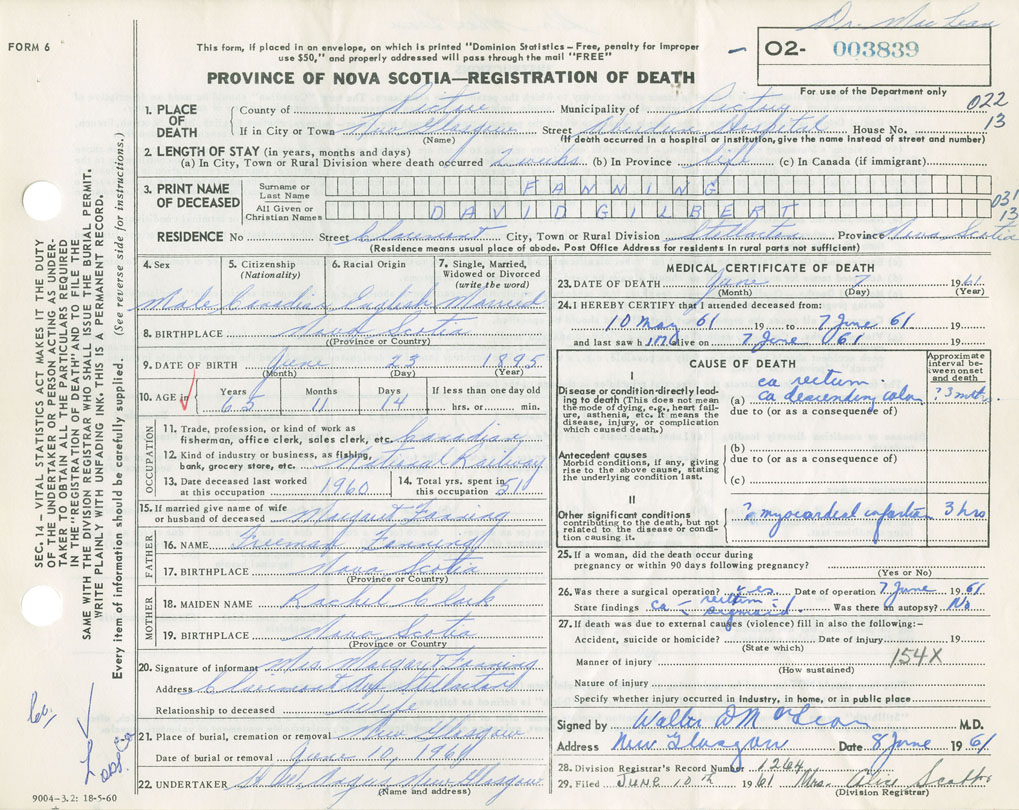 Dr. MacLean
FORM 6
This form, if placed in an envelope, on which is printed "Dominion Statistics – Free, penalty for improper
use $50," and properly addressed will pass through the mail "FREE"
02- 003839
PROVINCE OF NOVA SCOTIA—REGISTRATION OF DEATH
For use of the Department only
022
13
1. PLACE OF DEATH
County of Pictou Municipality of Pictou
If in City or Town New Glasgow Street Aberdeen Hospital House No.
(Name) (If death occurred in a hospital or institution, give the name instead of street and number)
2. LENGTH OF STAY (in years, months and days)
(a) In City, Town or Rural Division where death occurred 2 weeks (b) In Province life (c) In Canada (if immigrant)
3. PRINT NAME OF DECEASED
Surname or Last Name FANNING
All Given or Christian Names DAVID GILBERT
031
13
RESIDENCE No Street Claremont City, Town or Rural Division Stellarton Province Nova Scotia
(Residence means usual place of abode. Post Office Address for residents in rural parts not sufficient)
4. Sex 5. Citizenship (Nationality) 6. Racial Origin 7. Single, Married, Widowed or Divorced (write the word)
Male Canadian English Married
8. BIRTHPLACE Nova Scotia
(Province or Country)
9. DATE OF BIRTH June 23 1895
(Month) (Day) (Year)
10. AGE in Years Months Days If less than one day old
65 11 14 hrs. or min.
OCCUPATION
11. Trade, profession, or kind of work as
fisherman, office clerk, sales clerk, etc. Canadian
12. Kind of industry or business, as fishing,
bank, grocery store, etc. National Railway
13. Date deceased last worked at this occupation 1960 14. Total yrs. spent in this occupation 51
15. If married give name of wife
or husband of deceased Margaret Fanning
FATHER
16. NAME Freeman Fanning
17. BIRTHPLACE Nova Scotia
(Province or Country)
MOTHER
18. MAIDEN NAME Rachel Clark
19. BIRTHPLACE Nova Scotia
(Province or Country)
20. Signature of informant Mrs. Margaret Fanning
Address Stellarton
Relationship to deceased Wife
21. Place of burial, cremation or removal New Glasgow
Date of burial or removal June 10, 1961
22. UNDERTAKER New Glasgow
(Name and address)
MEDICAL CERTIFICATE OF DEATH
23. DATE OF DEATH June 7 1961
(Month) (Day) (Year)
24. I HEREBY CERTIFY that I attended deceased from:
10 May 61 19 to 7 June 61 19
and last saw him alive on 7 June 61 19
CAUSE OF DEATH
Approximate interval between onset and death
I
Disease or condition directly leading to death (This does not mean the mode of dying, e.g., heart failure, asthenia, etc. It means the disease, injury, or complication which caused death.)
ca rectum
(a) ca descending colon ? 3 mths
due to (or as a consequence of)
Antecedent causes
Morbid conditions, if any, giving rise to the above cause, stating the underlying condition last.
(b)
due to (or as a consequence of)
(c)
II
Other significant conditions
contributing to the death, but not related to the disease or condition causing it.
? myocardial infarction 3 hrs
25. If a woman, did the death occur during
pregnancy or within 90 days following pregnancy?
(Yes or No)
26. Was there a surgical operation? yes Date of operation 7 June 1961
State findings ca – rectum sigmoid. Was there an autopsy? No
27. If death was due to external causes (violence) fill in also the following:–
Accident, suicide or homicide? Date of injury 19
(State which)
Manner of injury 154X
(How sustained)
Nature of injury
Specify whether injury occurred in industry, in home, or in public place
Signed by Walter D McLean M.D.
Address New Glasgow Date 8 June 1961
28. Division Registrar's Record Number 1264
29. Filed June 10th 1961 Mrs. Alice Scott
(Division Registrar)
SEC. 14 – VITAL STATISTICS ACT MAKES IT THE DUTY
OF THE UNDERTAKER OR PERSON ACTING AS UNDER-
TAKER TO OBTAIN ALL THE PARTICULARS REQUIRED
IN THE "REGISTRATION OF DEATH" AND TO FILE THE
SAME WITH THE DIVISION REGISTRAR WHO SHALL ISSUE THE BURIAL PERMIT.
WRITE PLAINLY WITH UNFADING INK. THIS IS A PERMANENT RECORD.
Every item of information should be carefully supplied. (See reverse side for instructions.)
9004-3.2: 18-5-60